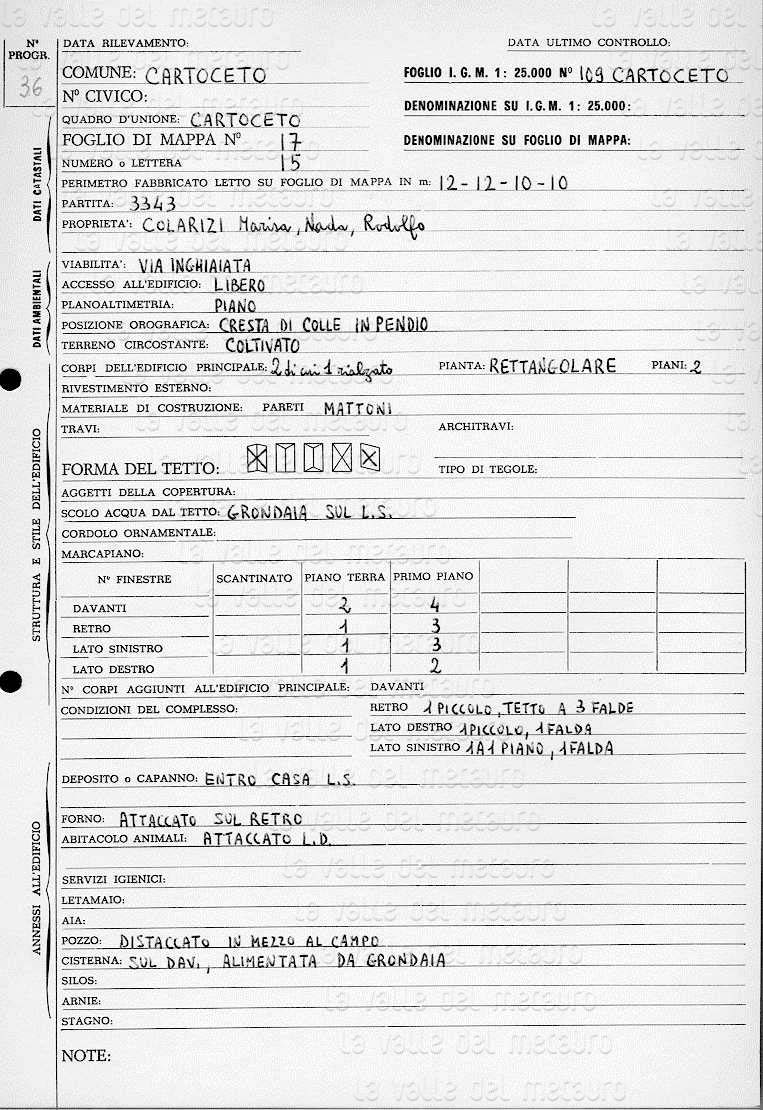 la valle del metauro
N° PROGR. 36
DATA RILEVAMENTO: DATA ULTIMO CONTROLLO:
COMUNE: CARTOCETO FOGLIO I. G. M. 1: 25.000 N° 109 CARTOCETO
N° CIVICO: DENOMINAZIONE SU I.G.M. 1: 25.000:
DATI CATASTALI
QUADRO D'UNIONE: CARTOCETO
FOGLIO DI MAPPA N° 17 DENOMINAZIONE SU FOGLIO DI MAPPA:
NUMERO o LETTERA 15
PERIMETRO FABBRICATO LETTO SU FOGLIO DI MAPPA IN m: 12-12-10-10
PARTITA: 3343
PROPRIETA': COLARIZI Marisa, Nada, Rodolfo
DATI AMBIENTALI
VIABILITA': VIA INGHIAIATA
ACCESSO ALL'EDIFICIO: LIBERO
PLANOALTIMETRIA: PIANO
POSIZIONE OROGRAFICA: CRESTA DI COLLE IN PENDIO
TERRENO CIRCOSTANTE: COLTIVATO
STRUTTURA E STILE DELL'EDIFICIO
CORPI DELL'EDIFICIO PRINCIPALE: 2 di cui 1 rialzato PIANTA: RETTANGOLARE PIANI: 2
RIVESTIMENTO ESTERNO:
MATERIALE DI COSTRUZIONE: PARETI MATTONI
TRAVI: ARCHITRAVI:
FORMA DEL TETTO: TIPO DI TEGOLE:
AGGETTI DELLA COPERTURA:
SCOLO ACQUA DAL TETTO: GRONDAIA SUL L.S.
CORDOLO ORNAMENTALE:
MARCAPIANO:
N° FINESTRE SCANTINATO PIANO TERRA PRIMO PIANO
DAVANTI 2 4
RETRO 1 3
LATO SINISTRO 1 3
LATO DESTRO 1 2
N° CORPI AGGIUNTI ALL'EDIFICIO PRINCIPALE: DAVANTI
CONDIZIONI DEL COMPLESSO: RETRO 1 PICCOLO, TETTO A 3 FALDE
LATO DESTRO 1 PICCOLO, 1 FALDA
LATO SINISTRO 1 A 1 PIANO, 1 FALDA
ANNESSI ALL'EDIFICIO
DEPOSITO o CAPANNO: ENTRO CASA L.S.
FORNO: ATTACCATO SUL RETRO
ABITACOLO ANIMALI: ATTACCATO L.D.
SERVIZI IGIENICI:
LETAMAIO:
AIA:
POZZO: DISTACCATO IN MEZZO AL CAMPO
CISTERNA: SUL DAV., ALIMENTATA DA GRONDAIA
SILOS:
ARNIE:
STAGNO:
NOTE: